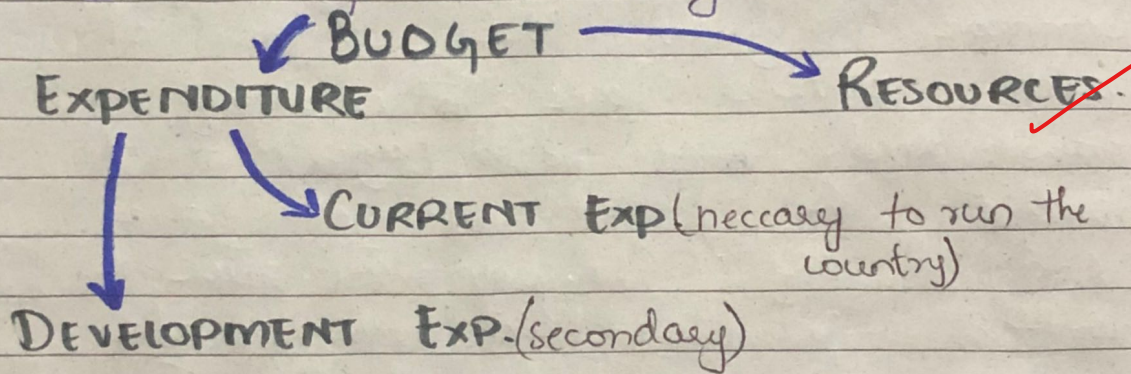 BUDGET
EXPENDITURE RESOURCES.
CURRENT EXP (neccary to run the
country)
DEVELOPMENT EXP. (secondary)